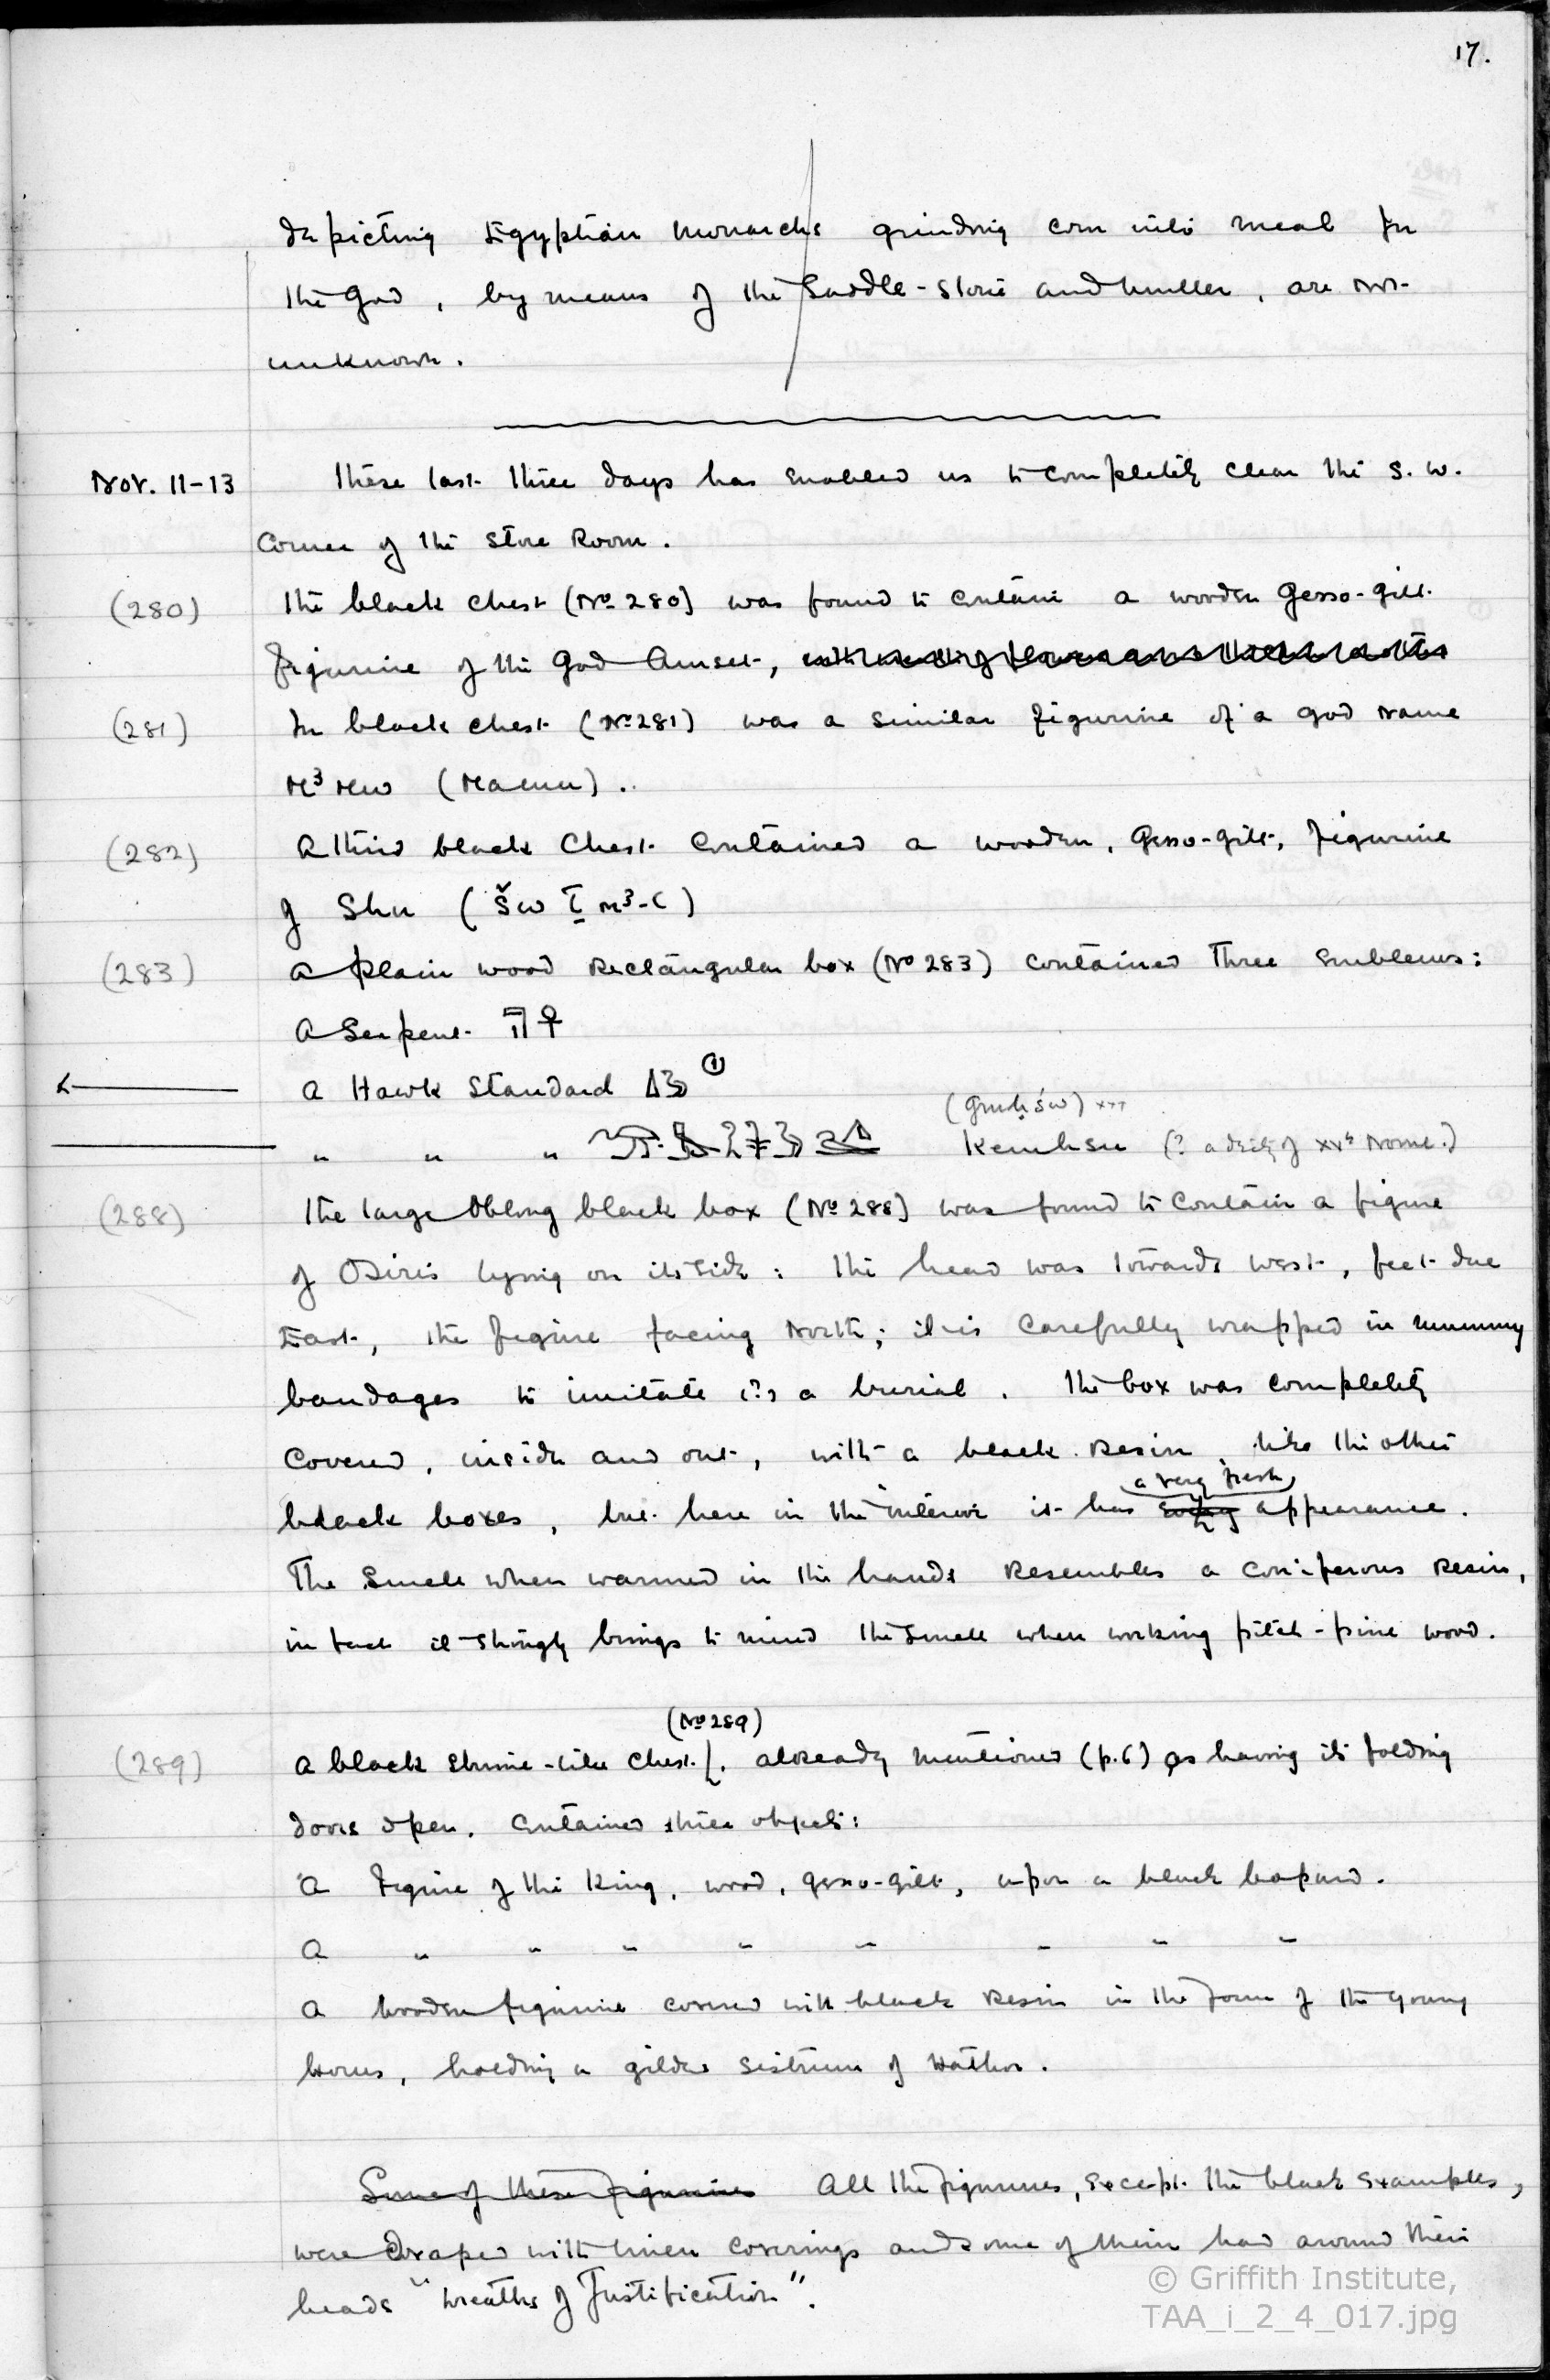 17.
depicting Egyptian monarchs grinding corn into meal for
the God, by means of the Saddle-Stone and muller, are not-
unknown.
Nov. 11-13 These last three days has enabled us to completely clear the S.W.
Corner of the Store Room.
(280) The black chest (No 280) was found to contain a wooden Gesso-gilt
figurine of the God Amset,
(281) In black chest (No 281) was a similar figurine of a god name
M3mw (Mamu).
(282) A third black Chest contained a wooden, Gesso-gilt, figurine
of Shu (Šw
(283) A plain wood Rectangular box (No 283) contained Three Emblems:
A Serpent 𓊹𓋹
A Hawk Standard ①
(gmḥśw) xxx
" " " Kemhsu (? a deity of XVth Nome.)
(288) The large oblong black box (No 288) was found to contain a figure
of Osiris lying on its side: the head was towards West, feet due
East, the figure facing North; it is carefully wrapped in mummy
bandages to imitate (?) a burial. The box was completely
covered, inside and out, with a black Resin, like the other
black boxes, but here in the interior it has a very fresh appearance.
The smell when warmed in the hands Resembles a coniferous Resin,
in fact it strongly brings to mind the smell when working pitch-pine wood.
(No 289)
(289) A black shrine-like chest, already mentioned (p.6) as having its folding
doors open, contained three objects:
A figure of the King, wood, gesso-gilt, upon a black leopard.
A " " " " " " " "
A wooden figurine covered with black Resin in the form of the young
Horus, holding a gilded Sistrum of Hathor.
Some of these figurines All the figurines, except the black examples,
were draped with linen coverings and some of them had around their
heads "Wreaths of Justification".
© Griffith Institute,
TAA_i_2_4_017.jpg